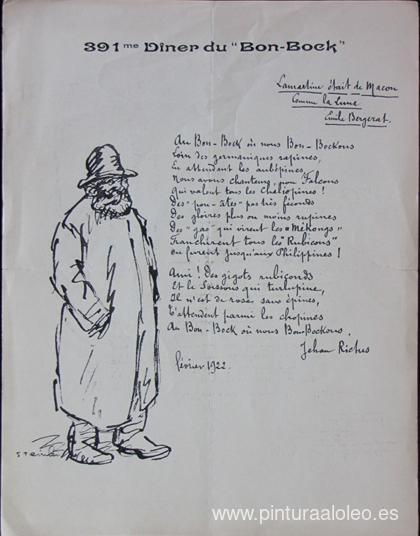 391me Dîner du "Bon-Bock"
Lamartine était de Macon
Comme la Lune
Emile Bergerat.
Au Bon-Bock où nous Bon-Bockons
Loin des germaniques rapines,
En attendant les aubépines,
Nous avons chanteurs pour Falcons
Qui valent tous les Chaliapines !
Des "pou-ètes" pas très féconds
Des gloires plus ou moins rupines
Des "gas" qui virent les "Mékongs"
Franchirent tous les "Rubicons"
Ou furent jusqu'aux Philippines !
Ami ! Des gigots rubiconds
Et le Soissons qui turlupine,
Il n'est de roses sans épines,
T'attendent parmi les chopines
Au Bon-Bock où nous Bon-Bockons.
Jehan Rictus
février 1922.
www.pinturaaloleo.es